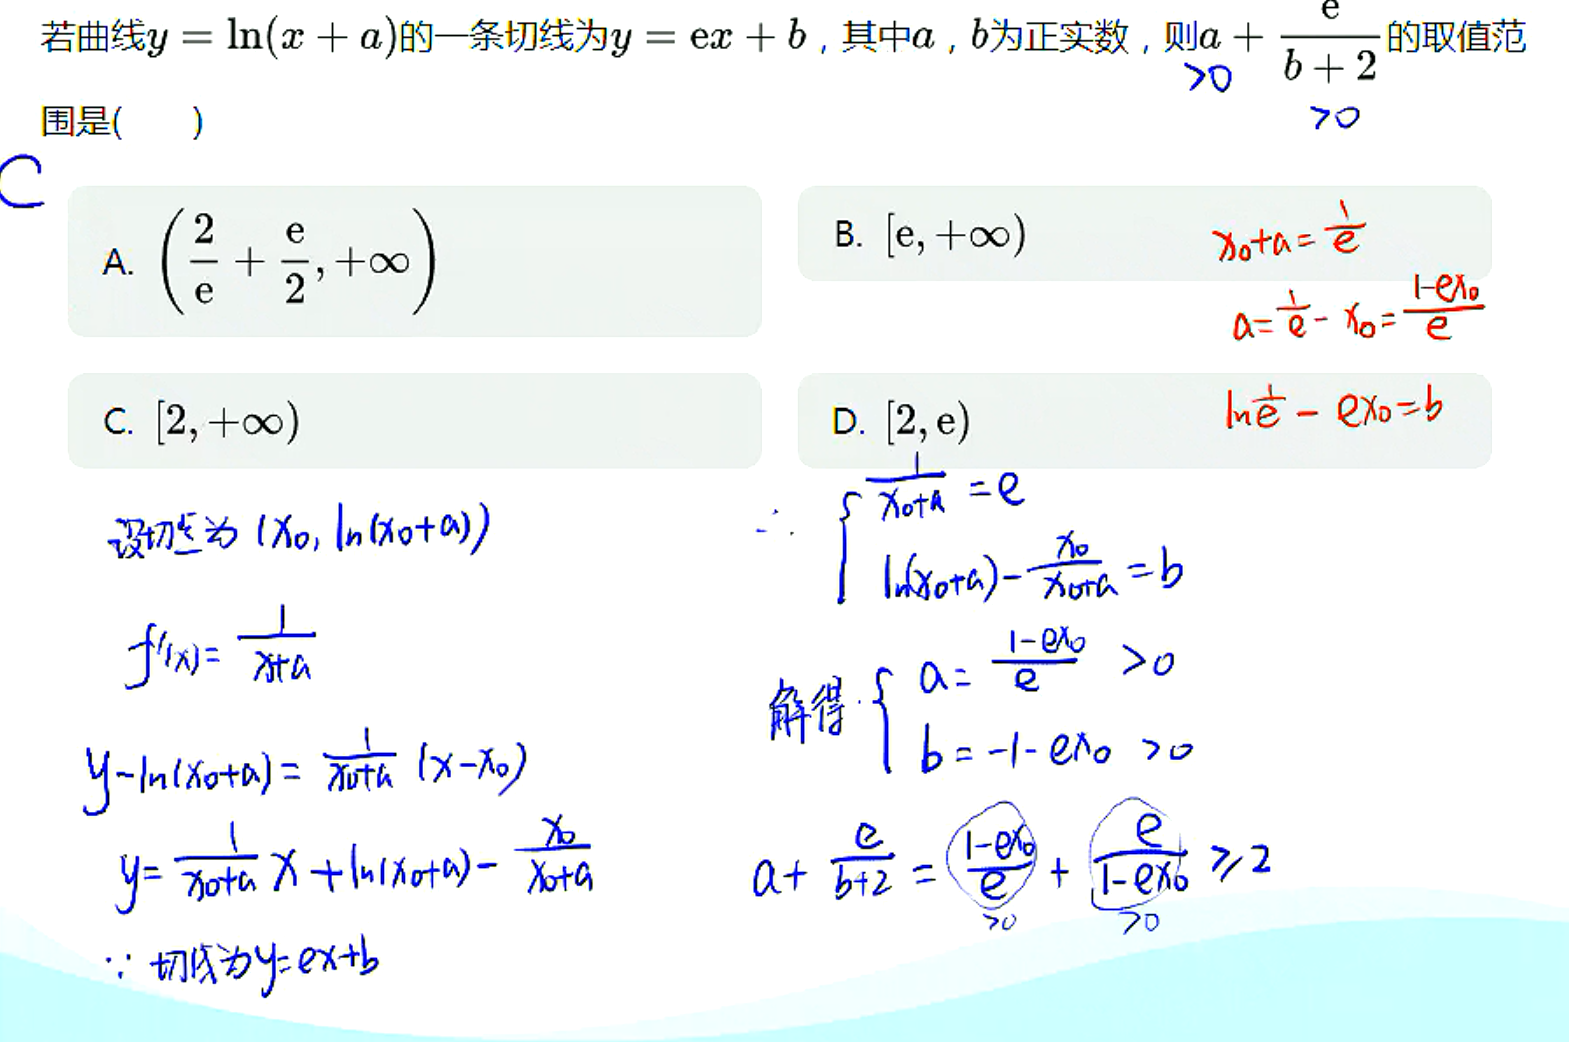 若曲线y = ln(x + a)的一条切线为y = ex + b，其中a，b为正实数，则a + e/(b + 2)的取值范
>0
围是(  )
>0
C
A. (2/e + e/2, +∞)
B. [e, +∞)
x₀+a = 1/e
a = 1/e - x₀ = (1-ex₀)/e
C. [2, +∞)
D. [2, e)
ln 1/e - ex₀ = b
设切点为 (x₀, ln(x₀+a))
f'(x) = 1/(x+a)
y-ln(x₀+a) = 1/(x₀+a) (x-x₀)
y = 1/(x₀+a) x + ln(x₀+a) - x₀/(x₀+a)
∵ 切线为y=ex+b
∴ { 1/(x₀+a) = e
ln(x₀+a) - x₀/(x₀+a) = b
解得 { a = (1-ex₀)/e >0
b = -1-ex₀ >0
a + e/(b+2) = (1-ex₀)/e + e/(1-ex₀) ≥ 2
>0 >0